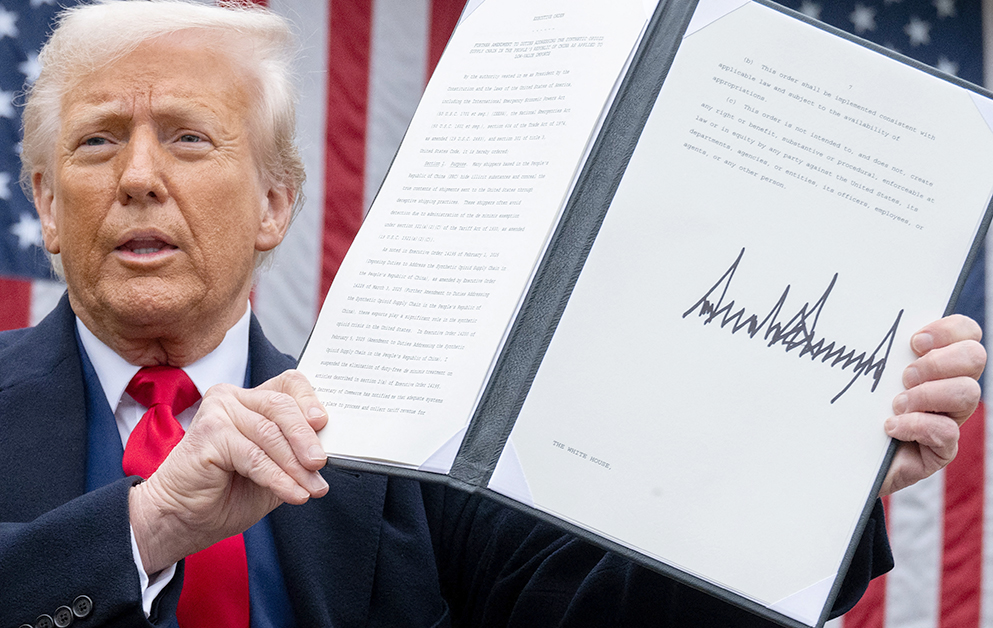 EXECUTIVE ORDER
FURTHER AMENDMENT TO DUTIES ADDRESSING THE SYNTHETIC OPIOID
SUPPLY CHAIN IN THE PEOPLE'S REPUBLIC OF CHINA AS APPLIED TO
LOW-VALUE IMPORTS
By the authority vested in me as President by the
Constitution and the laws of the United States of America,
including the International Emergency Economic Powers Act
(50 U.S.C. 1701 et seq.) (IEEPA), the National Emergencies Act
(50 U.S.C. 1601 et seq.), section 604 of the Trade Act of 1974,
as amended (19 U.S.C. 2483), and section 301 of title 3,
it is hereby ordered:
Section 1. Purpose. Many shippers based in the People's
Republic of China (PRC) hide illicit substances and conceal the
true contents of shipments sent to the United States through
deceptive shipping practices. These shippers often avoid
detection due to administration of the de minimis exemption
under section 321(a)(2)(C) of the Tariff Act of 1930, as amended
(19 U.S.C. 1321(a)(2)(C)).
As noted in Executive Order 14195 of February 1, 2025
(Imposing Duties to Address the Synthetic Opioid Supply Chain in
the People's Republic of China), as amended by Executive Order
14228 of March 3, 2025 (Further Amendment to Duties Addressing
the Synthetic Opioid Supply Chain in the People's Republic of
China), these exports play a significant role in the synthetic
opioid crisis in the United States. In Executive Order 14200 of
February 5, 2025 (Amendment to Duties Addressing the Synthetic
Opioid Supply Chain in the People's Republic of China), I
suspended the elimination of duty-free de minimis treatment on
articles described in section 2(a) of Executive Order 14195.
Secretary of Commerce has notified me that adequate systems
place to process and collect tariff revenue for
7
(b) This order shall be implemented consistent with
applicable law and subject to the availability of
appropriations.
(c) This order is not intended to, and does not, create
any right or benefit, substantive or procedural, enforceable at
law or in equity by any party against the United States, its
departments, agencies, or entities, its officers, employees, or
agents, or any other person.
THE WHITE HOUSE,